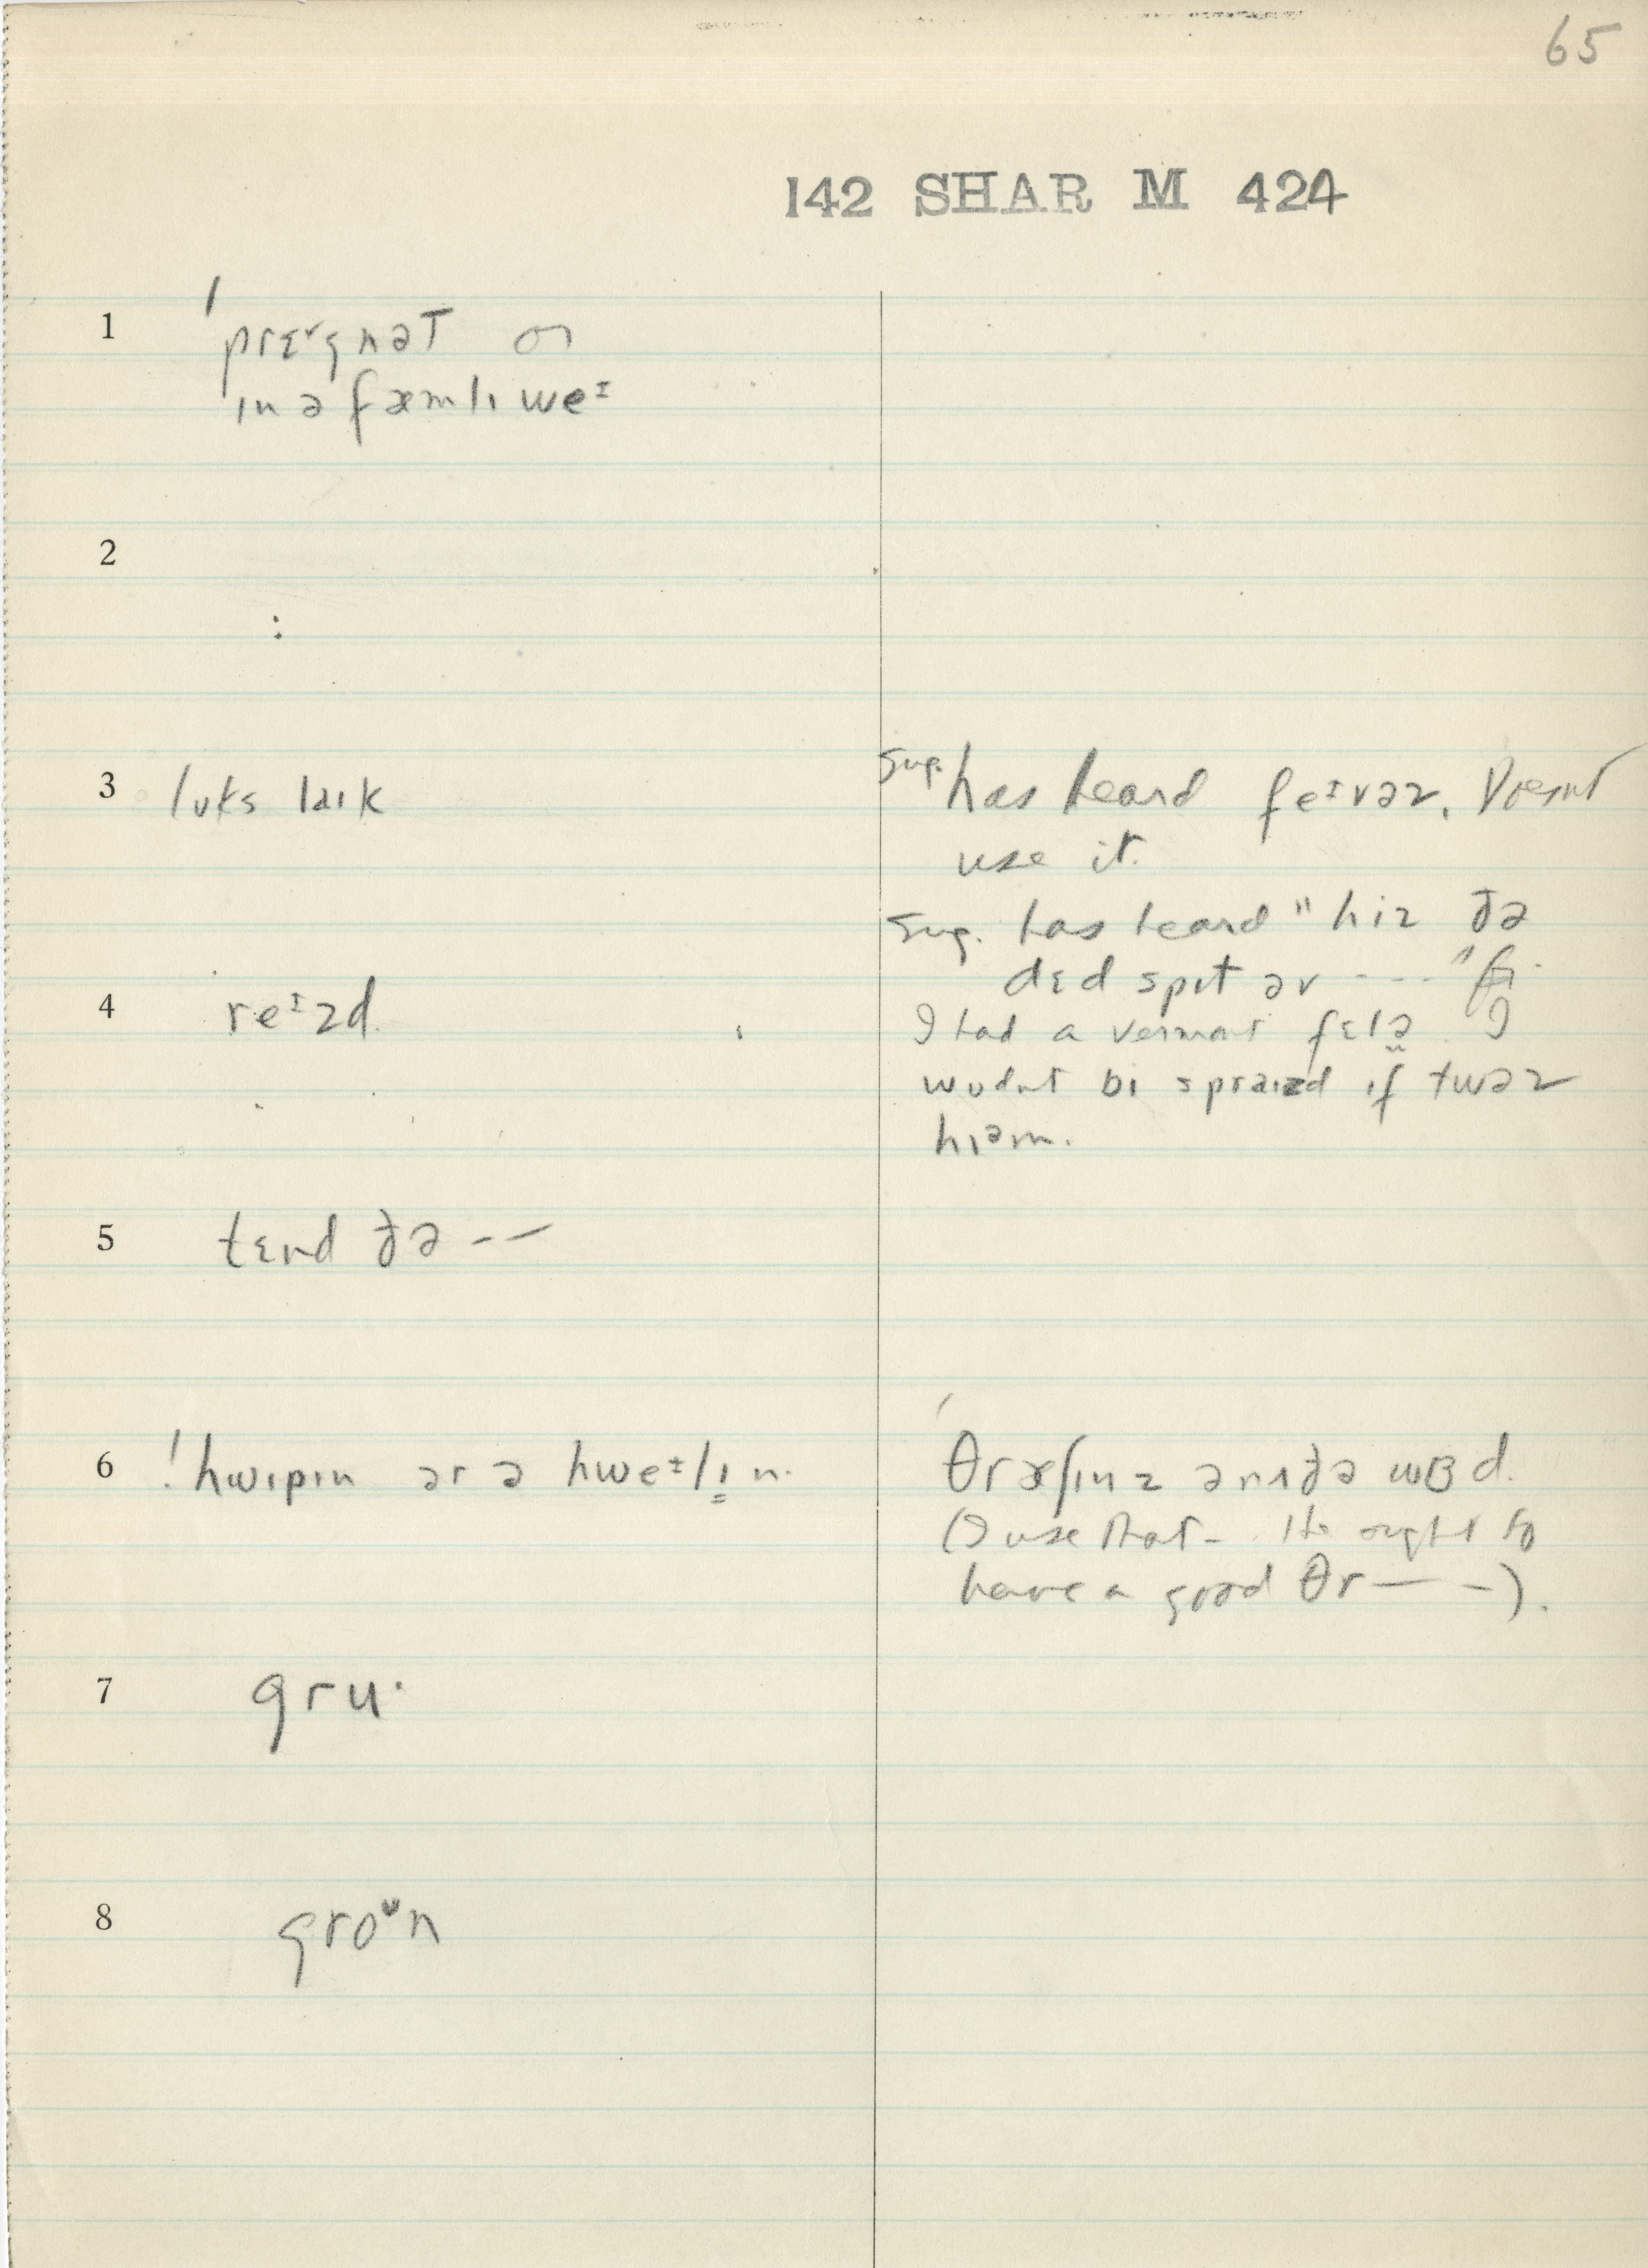 65
142 SHAR M 424
1 prɛ˅gnəT or
ɪn ə fæmlɪ weᶦ
2
:
3 lʊks laɪk
Sug. has heard feᶦvəz. Doesnt
use it.
Sug. has heard "hiz ðə
4 reᶦzd.
dɛd spɪt əv --- "
I had a Vermont fɛlə. I
wʊdnt bɪ spraɪzd ɪf twəz
hɪəm.
5 tɛnd ðə --
6 ! hwɪpɪn ər ə hweᶦlɪn.
θræʃɪnz ənʌðə wɜd.
(I use that - He ought to
have a good θr— -).
7 gru·
8 groᶷn